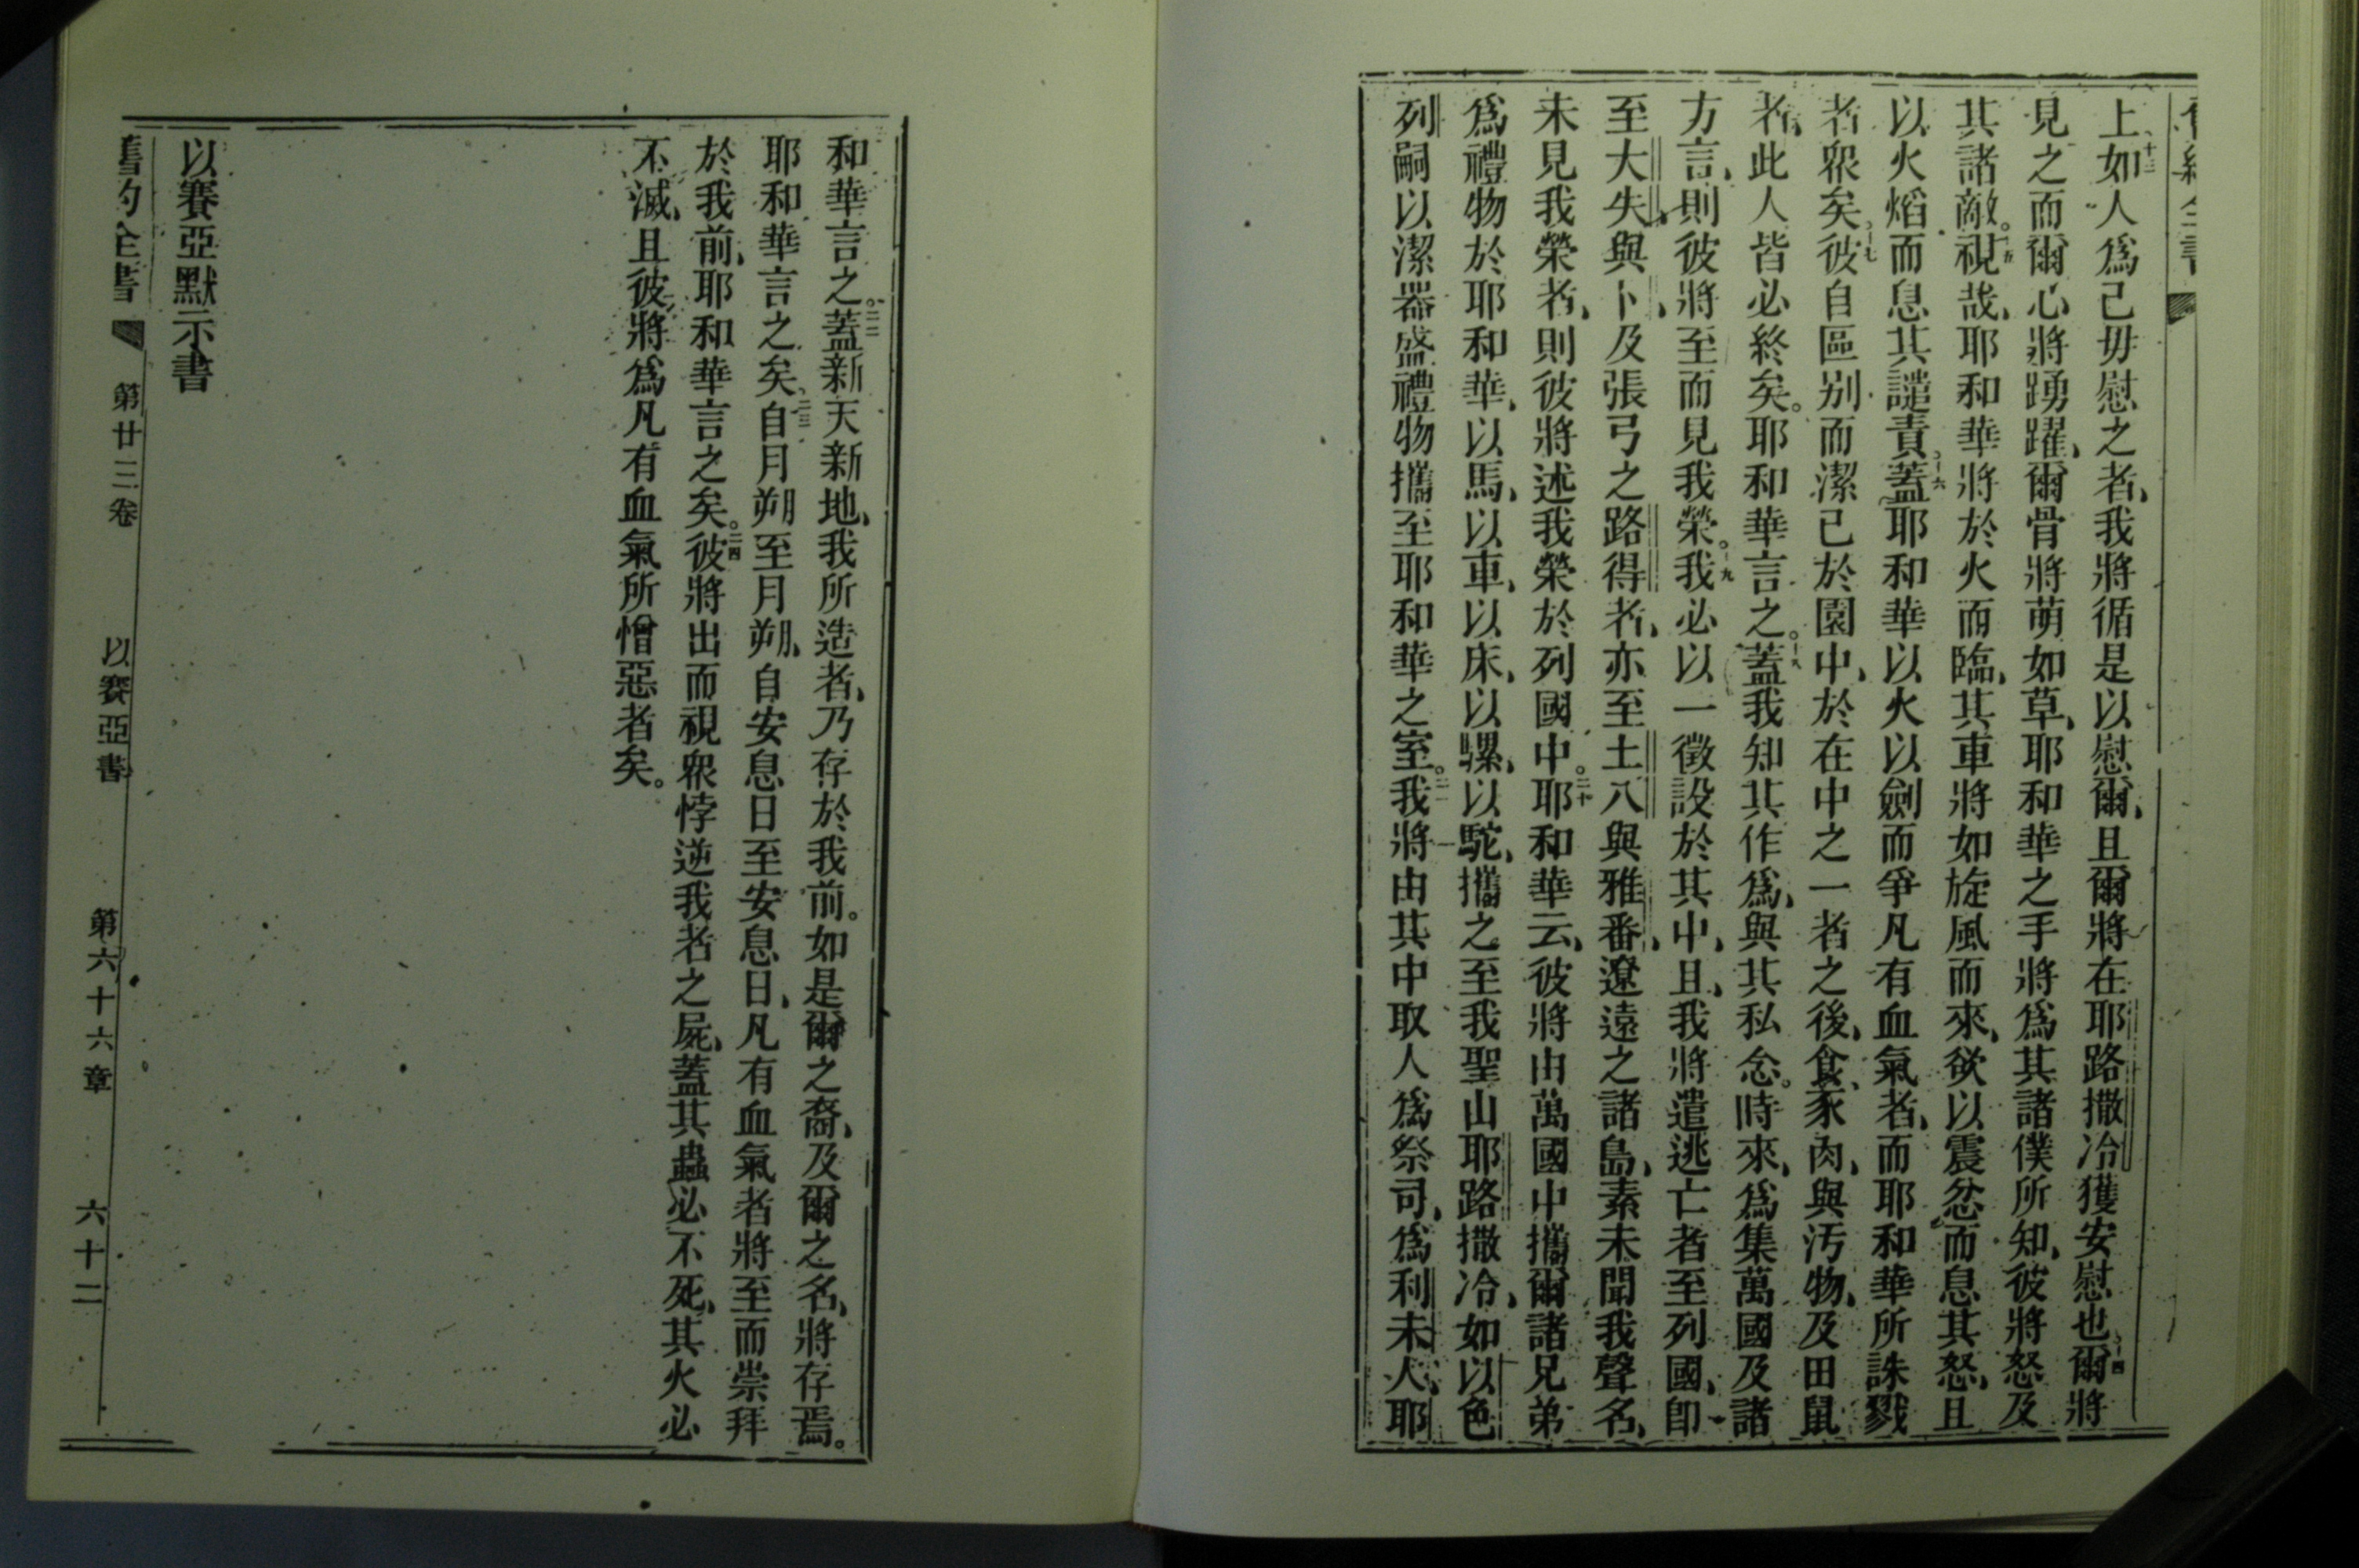 上如人爲己毋慰之者、我將循是以慰爾、且爾將在耶路撒冷獲安慰也爾將
見之而爾心將踴躍、爾骨將萌如草、耶和華之手將爲其諸僕所知、彼將怒及
其諸敵。視哉、耶和華將於火而臨、其車將如旋風而來、欲以震忿而息其怒、且
以火熖而息其譴責。蓋耶和華以火以劍而爭凡有血氣者、而耶和華所誅戮
者眾矣。彼自區別而潔己於園中、於在中之一者之後、食豕肉、與汚物、及田鼠
者、此人皆必終矣。耶和華言之。蓋我知其作爲、與其私念。時來、爲集萬國及諸
方言、則彼將至而見我榮。我必以一徵設於其中、且、我將遣逃亡者至列國、卽
至大失、與卜、及張弓之路得者、亦至土八與雅番、遼遠之諸島、素未聞我聲名、
未見我榮者、則彼將述我榮於列國中。耶和華云、彼將由萬國中攜爾諸兄弟
爲禮物於耶和華、以馬、以車、以床、以騾、以駝、攜之至我聖山耶路撒冷、如以色
列嗣以潔器盛禮物攜至耶和華之室。我將由其中取人爲祭司、爲利未人、耶
和華言之。蓋新天新地、我所造者、乃存於我前。如是爾之裔、及爾之名、將存焉。
耶和華言之矣、自月朔至月朔、自安息日至安息日、凡有血氣者將至而崇拜
於我前、耶和華言之矣。彼將出而視眾悖逆我者之屍、蓋其蟲必不死、其火必
不滅、且彼將爲凡有血氣所憎惡者矣。
以賽亞默示書
舊約全書 第廿三卷 以賽亞書 第六十六章 六十二